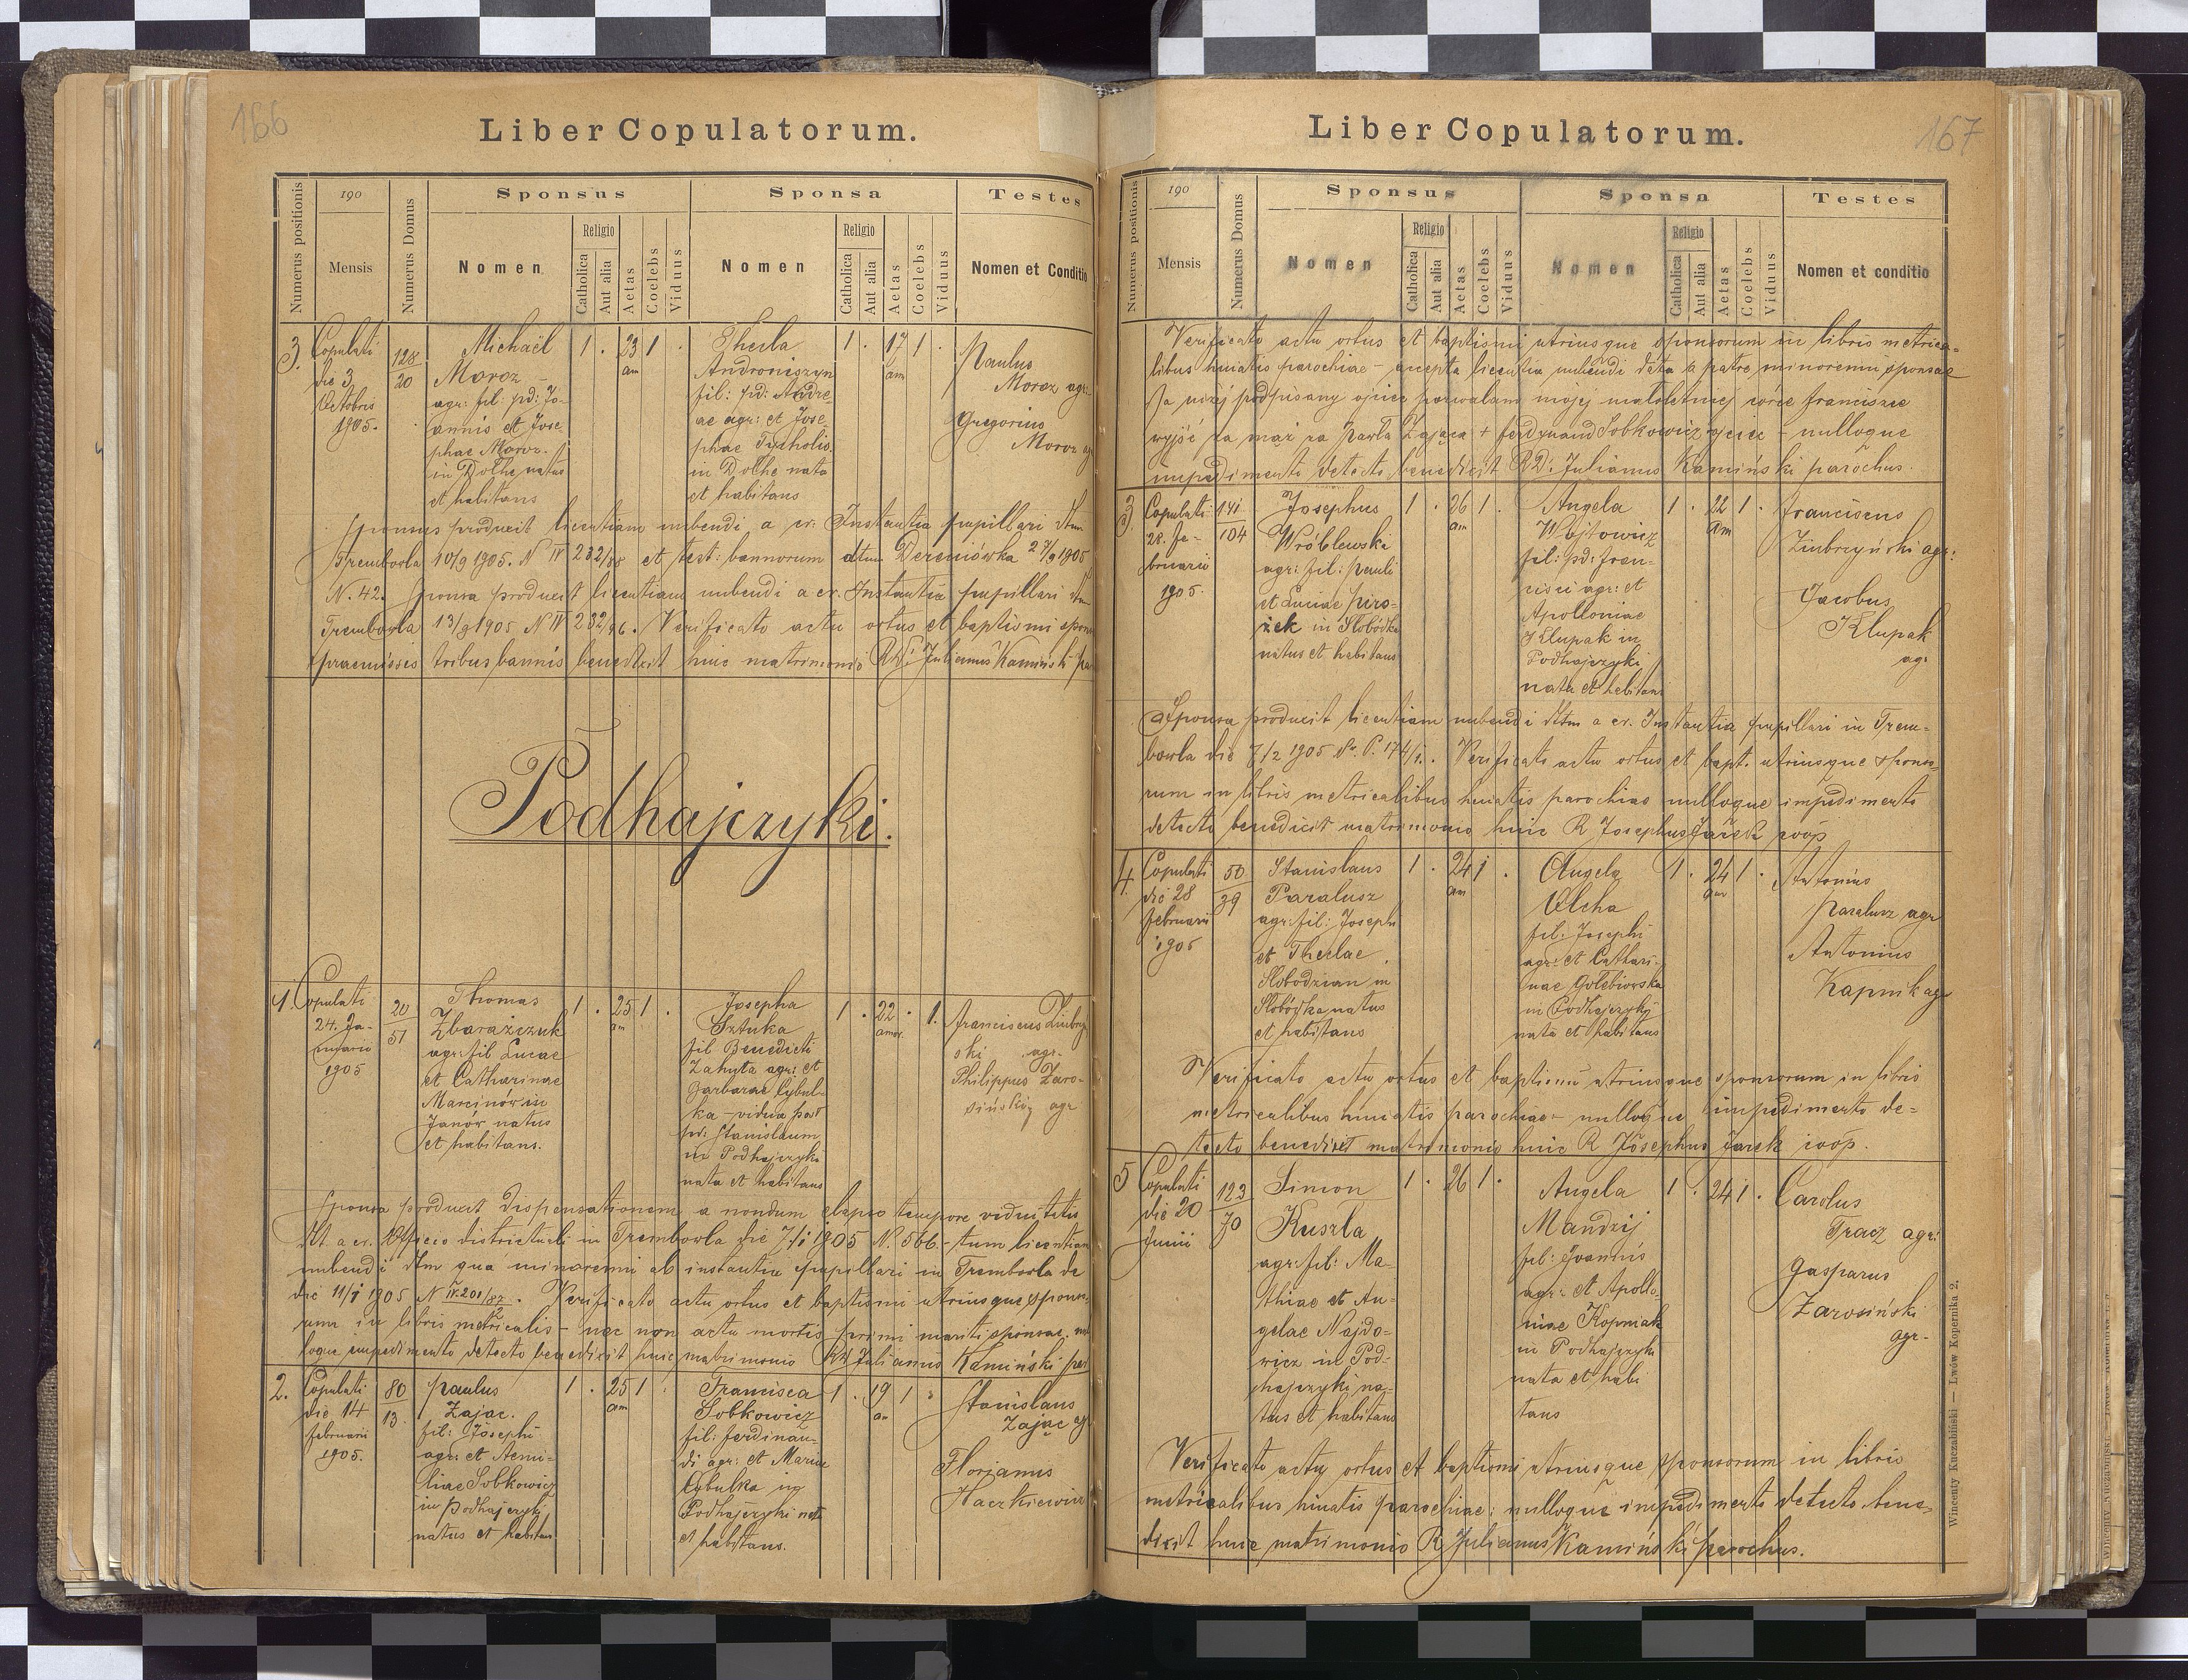 166
Liber Copulatorum.
Numerus positionis
190
Mensis
Numerus Domus
Sponsus
Nomen
Religio
Catholica
Aut alia
Aetas
Coelebs
Viduus
Sponsa
Nomen
Religio
Catholica
Aut alia
Aetas
Coelebs
Viduus
Testes
Nomen et Conditio
3. Copulati
die 3
Octobris
1905.
128
20
Michaël
Moroz
agr: fil: pd: Jo-
annis et Jose
phae Moroz.
in Dołhe natus
et habitans
1 . 23 1 .
am
Thecla
Androniszyn
fil: pd: Andre-
ae agr: et Jose
phae
in Dołhe nata
et habitans
1 . 17 1 .
am
Paulus
Moroz agr.
Gregorius
Moroz
Sponsus producit licentiam nubendi a cr. Instantia pupillari dtm
Trembowla 10/9 1905. N IV 232/88 et test: bannorum dtum Dereniówka 27/9 1905
N. 42. Sponsa producit licentiam nubendi a cr. Instantia pupillari dtm
Trembowla 13/9 1905 N IV 232/96. Verificato actu ortus et baptismi
praemissis tribus bannis benedicit huic matrimonio RD: Julianus Kamiński
Podhajczyki.
1. Copulati
24. Ja-
nuario
1905
20
51
Thomas
Zbarażczuk
agr: fil Lucae
et Catharinae
Marcinów in
Janów natus
et habitans.
1 . 25 1 .
am
Josepha
Sztuka
fil Benedicti
Zahuta agr: et
Barbarae Cybul-
ka - vidua post
pd: Stanislaum
in Podhajczyki
nata et habitans
1 . 22 . 1.
annor.
Franciscus
ski agr.
Philippus Zaro-
siński agr
Sponsa producit dispensationem a nondum elapso tempore viduitatis
dtt a cr. Officio districtuali in Trembowla die 7/1 1905 N. 566 - tum licentiam
nubendi dtm qua minorenni ab instantia pupillari in Trembowla de
die 11/1 1905 N IV.201/87. Verificato actu ortus et baptismi utriusque sponso
rum in libris metricalis - nec non actu mortis primi mariti sponsae.
loque impedimento detecto benedicit huic matrimonio RD Julianus Kamiński par
2. Copulati
die 14
februarii
1905.
80
13
Paulus
Zając.
fil: Josephi
agr: et Aemi-
liae Sobkowicz
in Podhajczyki
natus et habitans
1 . 25 1
am
Francisca
Sobkowicz
fil: Ferdinan-
di agr: et Mariae
Cybulka in
Podhajczyki nata
et habitans.
1 . 19 1 .
an
Stanislaus
Zając
Florianus
Haczkiewicz
167
Liber Copulatorum.
Numerus positionis
190
Mensis
Numerus Domus
Sponsus
Nomen
Religio
Catholica
Aut alia
Aetas
Coelebs
Viduus
Sponsa
Nomen
Religio
Catholica
Aut alia
Aetas
Coelebs
Viduus
Testes
Nomen et conditio
Verificato actu ortus et baptismi utriusque sponsorum in libris metrica-
libus huiatis parochiae - accepta licentia nubendi data a patre minorenni sponsae
Ja niżej podpisany ojciec pozwalam mojej małoletniej córce Franciszce
wyjść za mąż za Pawła Zająca + Ferdynand Sobkowicz ojciec - nulloque
impedimento detecto benedicit RD: Julianus Kamiński parochus.
3 Copulati
28. Fe-
bruarii
1905.
141
104
Josephus
Wróblewski
agr: fil: Pauli
et Luciae Piro-
żek in Słobódka
natus et habitans
1 . 26 1 .
am
Angela
Wojtowicz
fil: pd: Fran-
cisci agr: et
Apolloniae
Kłupak in
Podhajczyki
nata et habitans
1 . 22 1 .
am
Franciscus
agr:
Jacobus
Kłupak
agr
Sponsa producit licentiam nubendi dtm a cr. Instantia pupillari in Trem-
bowla die 7/2 1905 Nr. P. 174/1. Verificato actu ortus et bapt. utriusque sponso-
rum in libris metricalibus huiatis parochiae nulloque impedimento
detecto benedicit matrimonio huic R Josephus Jarek coop
4. Copulati
die 28
februarii
1905
50
39
Stanislaus
Paralusz
agr: fil: Joseph
et Theclae
Słobodzian in
Słobódka natus
et habitans
1 . 24 1 .
am
Angela
Olcha
fil: Josephi
agr: et Cathari-
nae Gołębiowska
in Podhajczyki
nata et habitans
1 . 24 1 .
am
Antonius
Paralusz agr
Antonius
Kapnik agr
Verificato actu ortus et baptismi utriusque sponsorum in libris
metricalibus huiatis parochiae - nulloque impedimento de-
tecto benedixit matrimonio huic R Josephus Jarek coop.
5 Copulati
die 20
Junii
123
70
Simon
Kuszła
agr: fil: Ma-
thiae et An-
gelae Najdo-
wicz in Pod-
hajczyki na-
tus et habitans
1 . 26 1 .
Angela
Mandzij
fil: Joannis
agr: et Apollo-
niae Kopniak
in Podhajczyki
nata et habi
tans
1 . 24 1 .
Carolus
Tracz agr:
Gasparus
Zarosiński
agr-
Verificato actu ortus et baptismi utriusque sponsorum in libris
metricalibus huiatis parochiae: nulloque impedimento detecto bene-
dixit huic matrimonio R Julianus Kamiński parochus.
Wincenty Kuczabiński — Lwów Kopernika 2.